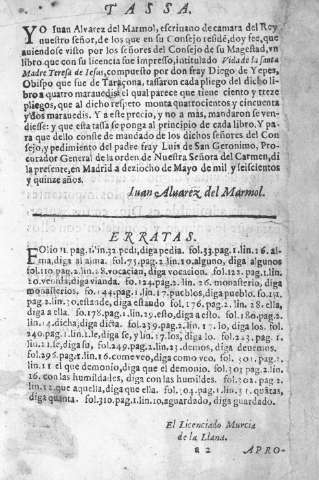 TASSA.
YO Iuan Alvarez del Marmol, escriuano de camara del Rey
nuestro señor, de los que en su Consejo residē, doy fee, que
auiendose visto por los señores del Consejo de su Magestad, vn
libro que con su licencia fue impresso, intitulado Vida de la santa
Madre Teresa de Iesus, compuesto por don fray Diego de Yepes,
Obispo que fue de Taraçona, tassaron cada pliego del dicho li-
bro a quatro marauedis, el qual parece que tiene ciento y treze
pliegos, que al dicho respeto monta quatrocientos y cincuenta
y dos marauedis. Y a este precio, y no a màs, mandaron se ven-
diesse: y que esta tassa se ponga al principio de cada libro. Y pa
ra que dello conste de mandado de los dichos señores del Con
sejo, y pedimiento del padre fray Luis de San Geronimo, Pro-
curador General de la orden de Nuestra Señora del Carmen, di
la presente, en Madrid a deziocho de Mayo de mil y seiscientos
y quinze años.
Iuan Alvarez del Marmol.
ERRATAS.
FOlio 11. pag. 1. lin. 32. pedi, diga pedia. fol. 33. pag. 1. lin. 16. al-
ma, diga al alma. fol. 75. pag. 2. lin. 10. alguno, diga algunos
fol. 110. pag. 1. lin. 18. vocacian, diga vocacion. fol. 121. pag. 1. lin.
20. venida, diga vianda. fo. 124. pag. 2. lin. 26. monasterio, diga
monasterios. fo. 144. pag. 1. lin. 17. pueblos, diga pueblo. fo. 151.
pag. 2. lin. 10. estande, diga estando. fol. 176. pag. 2. lin. 28. ella,
diga a ella. fo. 178. pag. 1. lin. 29. esto, diga a esto. fol. 186. pag. 2.
lin. 14. dicha, diga dicta. fol. 239. pag. 2. lin. 17. lo, diga los. fol.
240. pag. 1. lin. 1. le, diga se, y lin. 17. los, diga lo. fol. 243. pag. 1.
lin. 21. se, diga su, fol. 249. pag. 2. lin. 23. demos, diga deuemos.
fol. 296. pag. 1. lin. 16. come veo, diga como veo. fol. 301. pag. 1.
lin. 11. el que demonio, diga que el demonio. fol. 303. pag. 2. lin.
26. con las humildades, diga con las humildes. fol. 302. pag. 2.
lin. 12. que aquella, diga que ella. fol. 304. pag. 1. lin. 31. quātas,
diga quanta. fol. 310. pag. 1. lin. 10. aguardado, diga guardado.
El Licenciado Murcia
de la Llana.
a 2 APRO-